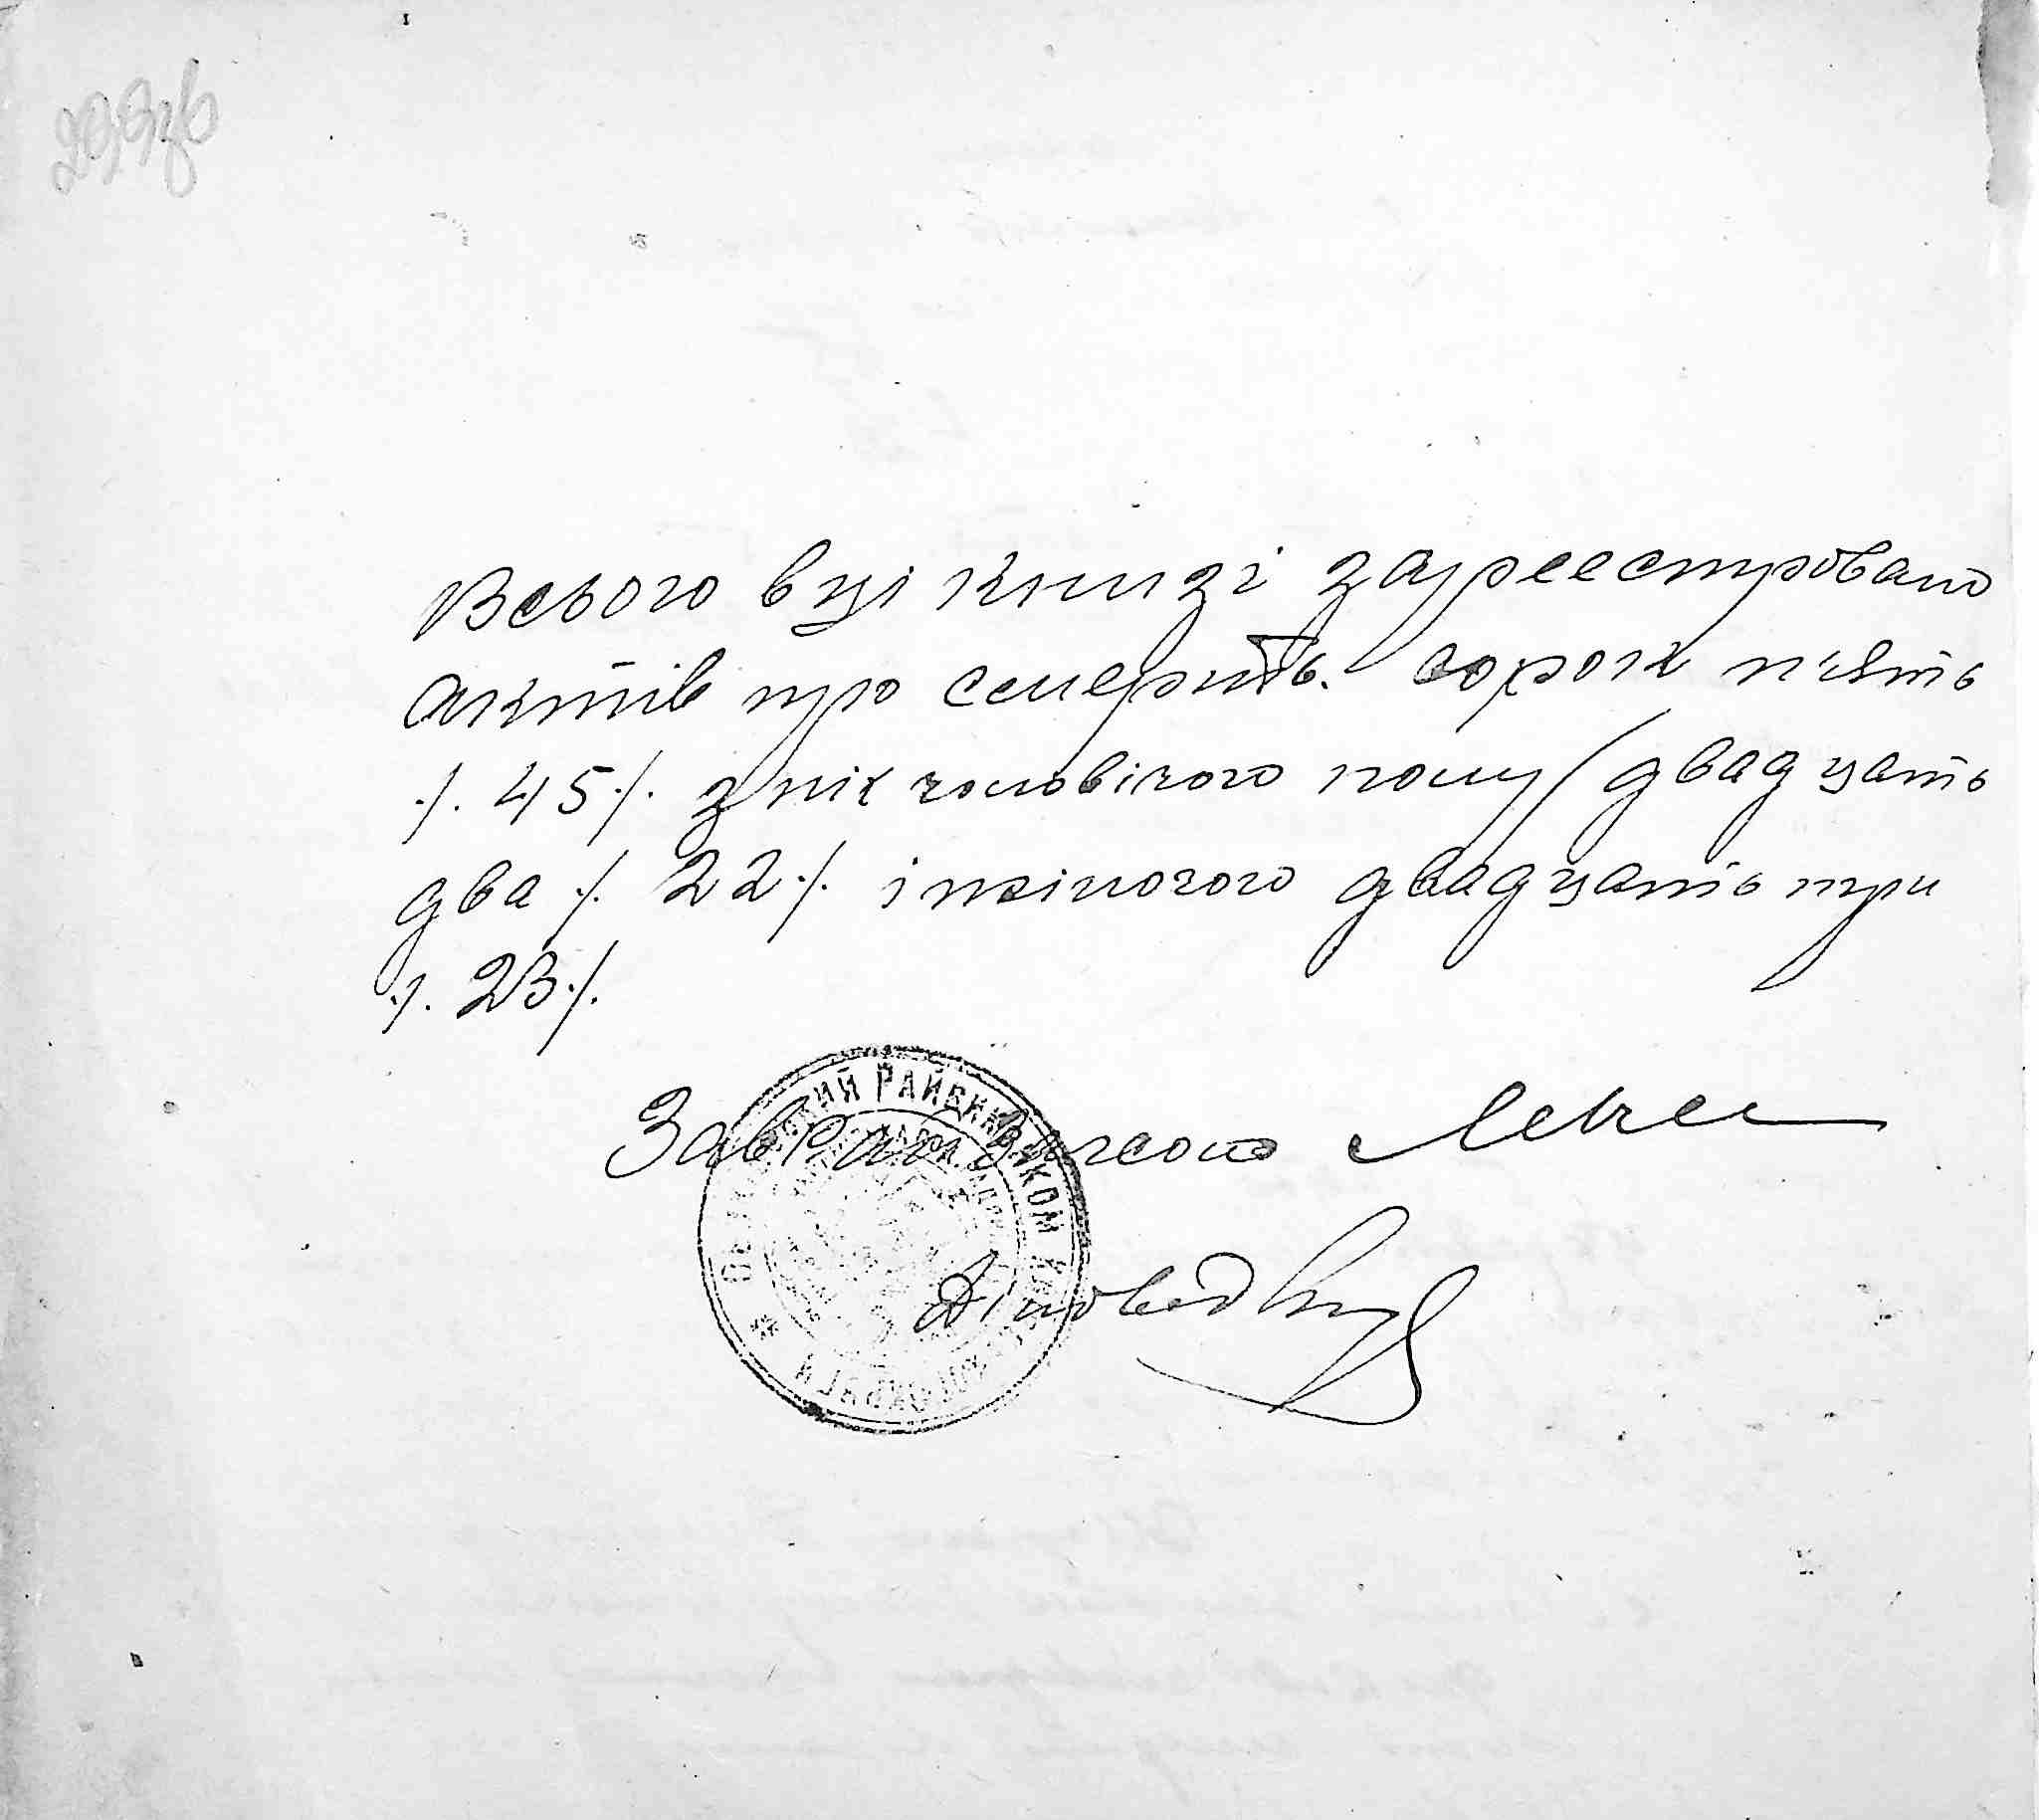 299зв
Всього в ці книзі зареестровано
актів про смерть. сорок п'ять
./. 45 ./. з них чоловічого полу / двадцать
два ./. 22 ./. і жіночого двадцать три
./. 23 ./.
Зав Рай Загсом
РАЙВИКОНКОМ
Діловод